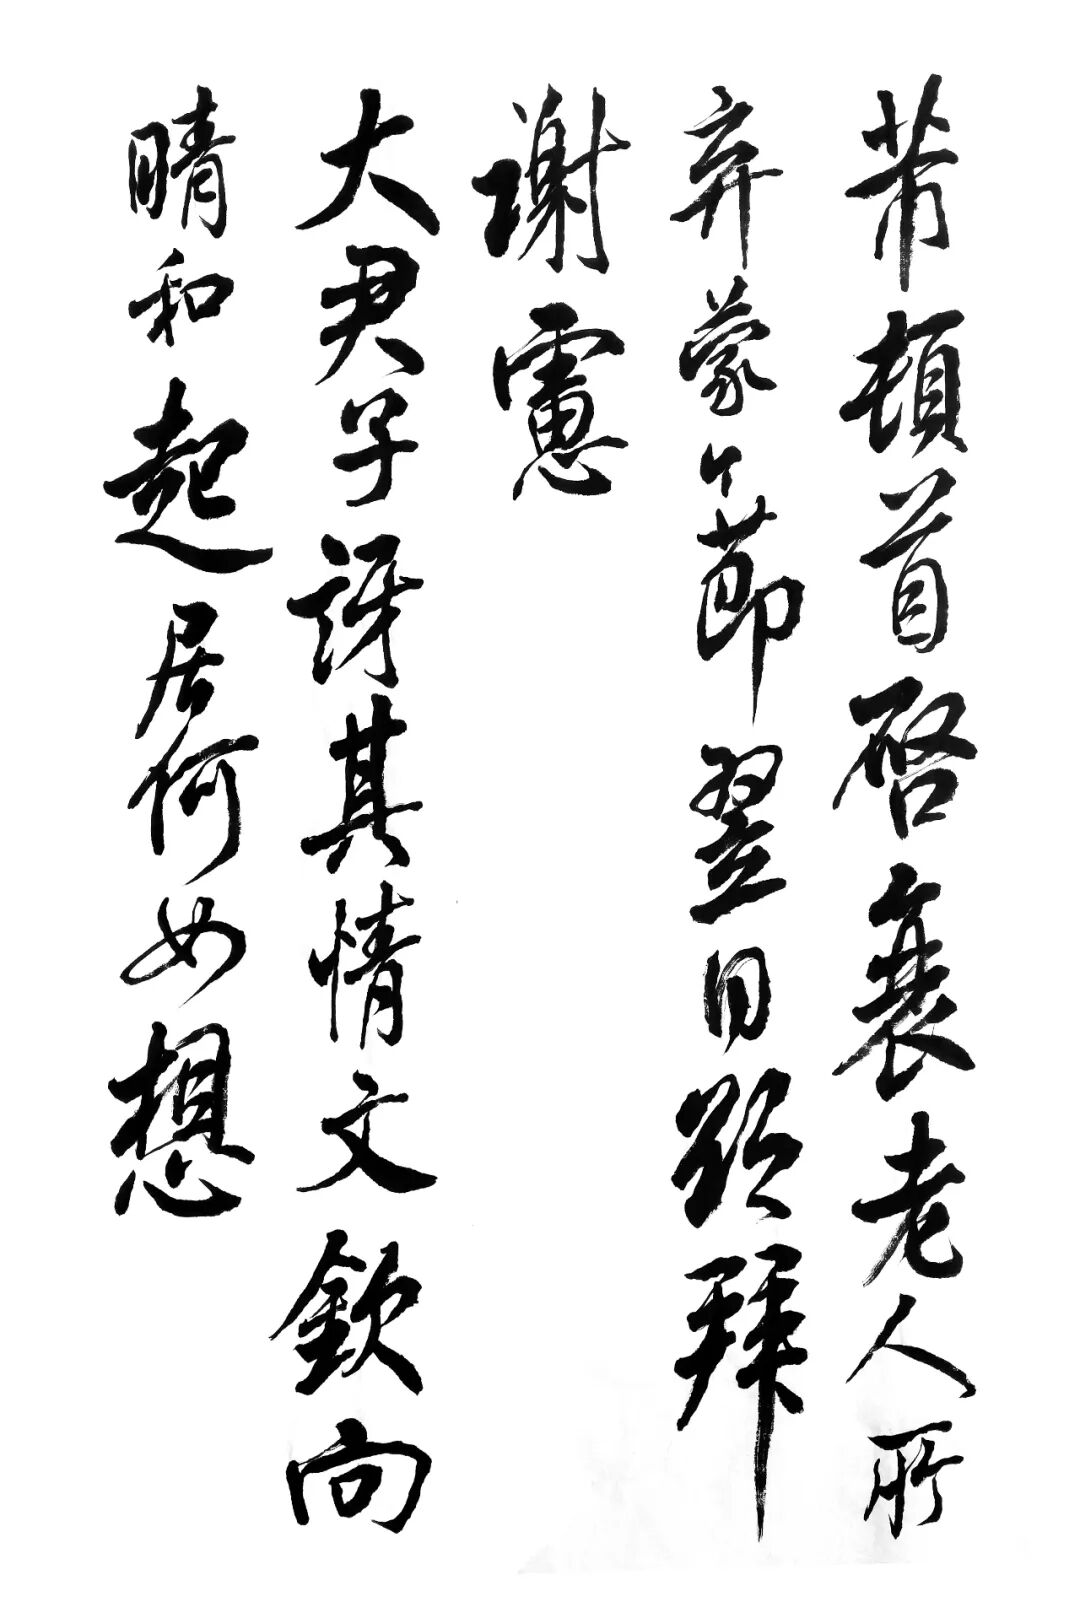 芾頓首啓衰老人所
弃蒙節翌日欲拜
謝憲
大君子訝其情文欽向
晴和起居何如想